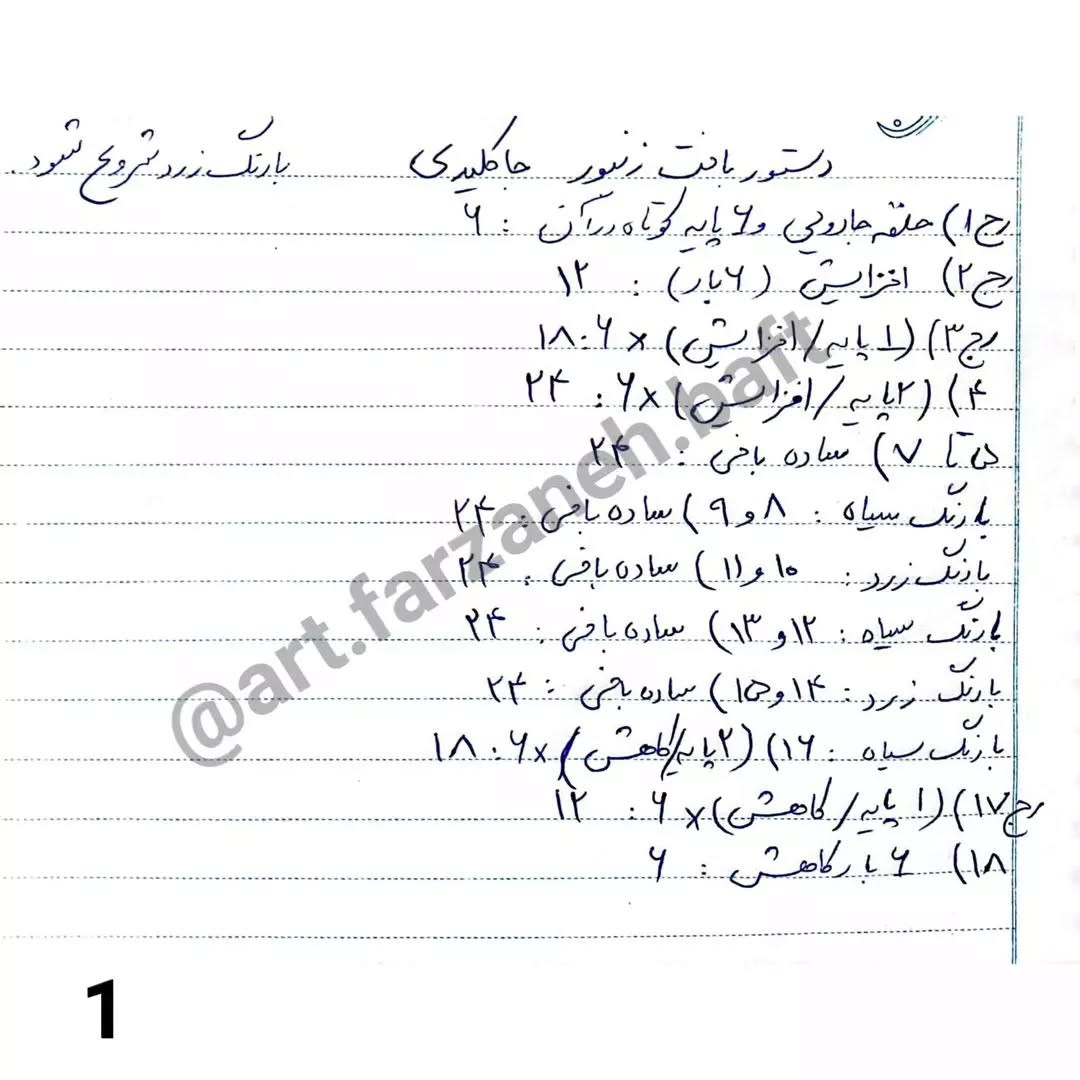 دستور بافت زنبور جاکلیدی با رنگ زرد شروع شود.
رج ۱) حلقه جادویی و ۶ پایه کوتاه در آن : ۶
رج ۲) افزایش (۶ بار) : ۱۲
رج ۳) (۱ پایه / افزایش) × ۶ : ۱۸
۴) (۲ پایه / افزایش) × ۶ : ۲۴
۵ تا ۷) ساده بافی : ۲۴
با رنگ سیاه : ۸ و ۹) ساده بافی : ۲۴
با رنگ زرد : ۱۰ و ۱۱) ساده بافی : ۲۴
با رنگ سیاه : ۱۲ و ۱۳) ساده بافی : ۲۴
با رنگ زرد : ۱۴ و ۱۵) ساده بافی : ۲۴
با رنگ سیاه : ۱۶) (۲ پایه / کاهش) × ۶ : ۱۸
رج ۱۷) (۱ پایه / کاهش) × ۶ : ۱۲
۱۸) ۶ بار کاهش : ۶
@art.farzaneh.baft
1